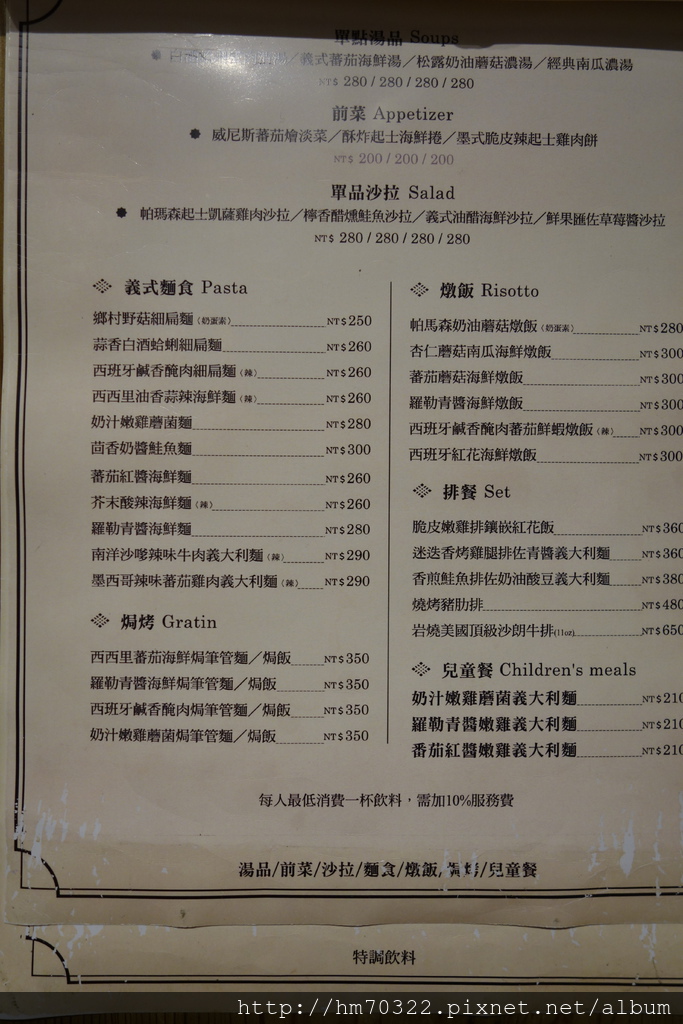 單點湯品 Soups
義式蕃茄海鮮湯／松露奶油蘑菇濃湯／經典南瓜濃湯
NT$ 280 / 280 / 280 / 280
前菜 Appetizer
威尼斯蕃茄燴淡菜／酥炸起士海鮮捲／墨式脆皮辣起士雞肉餅
NT$ 200 / 200 / 200
單品沙拉 Salad
帕瑪森起士凱薩雞肉沙拉／檸香醋燻鮭魚沙拉／義式油醋海鮮沙拉／鮮果匯佐草莓醬沙拉
NT$ 280 / 280 / 280 / 280
義式麵食 Pasta
鄉村野菇細扁麵（奶蛋素） NT$250
蒜香白酒蛤蜊細扁麵 NT$260
西班牙鹹香醃肉細扁麵（辣） NT$260
西西里油香蒜辣海鮮麵（辣） NT$260
奶汁嫩雞蘑菌麵 NT$280
茴香奶醬鮭魚麵 NT$300
蕃茄紅醬海鮮麵 NT$260
芥末酸辣海鮮麵（辣） NT$260
羅勒青醬海鮮麵 NT$280
南洋沙嗲辣味牛肉義大利麵（辣） NT$290
墨西哥辣味蕃茄雞肉義大利麵（辣） NT$290
焗烤 Gratin
西西里蕃茄海鮮焗筆管麵／焗飯 NT$350
羅勒青醬海鮮焗筆管麵／焗飯 NT$350
西班牙鹹香醃肉焗筆管麵／焗飯 NT$350
奶汁嫩雞蘑菌焗筆管麵／焗飯 NT$350
燉飯 Risotto
帕馬森奶油蘑菇燉飯（奶蛋素） NT$280
杏仁蘑菇南瓜海鮮燉飯 NT$300
蕃茄蘑菇海鮮燉飯 NT$300
羅勒青醬海鮮燉飯 NT$300
西班牙鹹香醃肉蕃茄鮮蝦燉飯（辣） NT$300
西班牙紅花海鮮燉飯 NT$300
排餐 Set
脆皮嫩雞排鑲嵌紅花飯 NT$360
迷迭香烤雞腿排佐青醬義大利麵 NT$360
香煎鮭魚排佐奶油酸豆義大利麵 NT$380
燒烤豬肋排 NT$480
岩燒美國頂級沙朗牛排(11oz) NT$650
兒童餐 Children's meals
奶汁嫩雞蘑菌義大利麵 NT$210
羅勒青醬嫩雞義大利麵 NT$210
番茄紅醬嫩雞義大利麵 NT$210
每人最低消費一杯飲料，需加10%服務費
湯品/前菜/沙拉/麵食/燉飯/焗烤/兒童餐
特調飲料
http://hm70322.pixnet.net/album